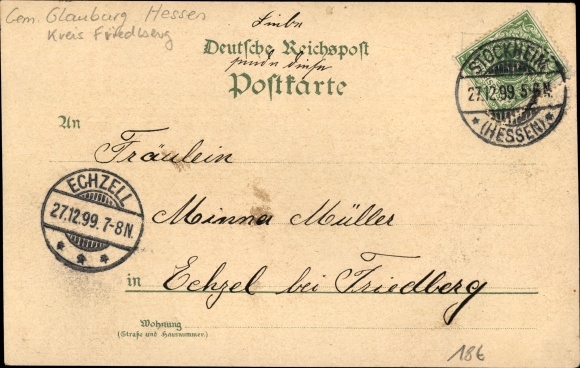 Gem. Glauburg Hessen
Kreis Friedberg
Liebe
Deutsche Reichspost
sende diese
Postkarte
STOCKHEIM
27.12.99. 5-6 N.
* (HESSEN) *
An
Fräulein
ECHZELL
27.12.99. 7-8 N.
* * *
Minna Müller
in Echzel bei Friedberg
Wohnung
(Straße und Hausnummer.)
186